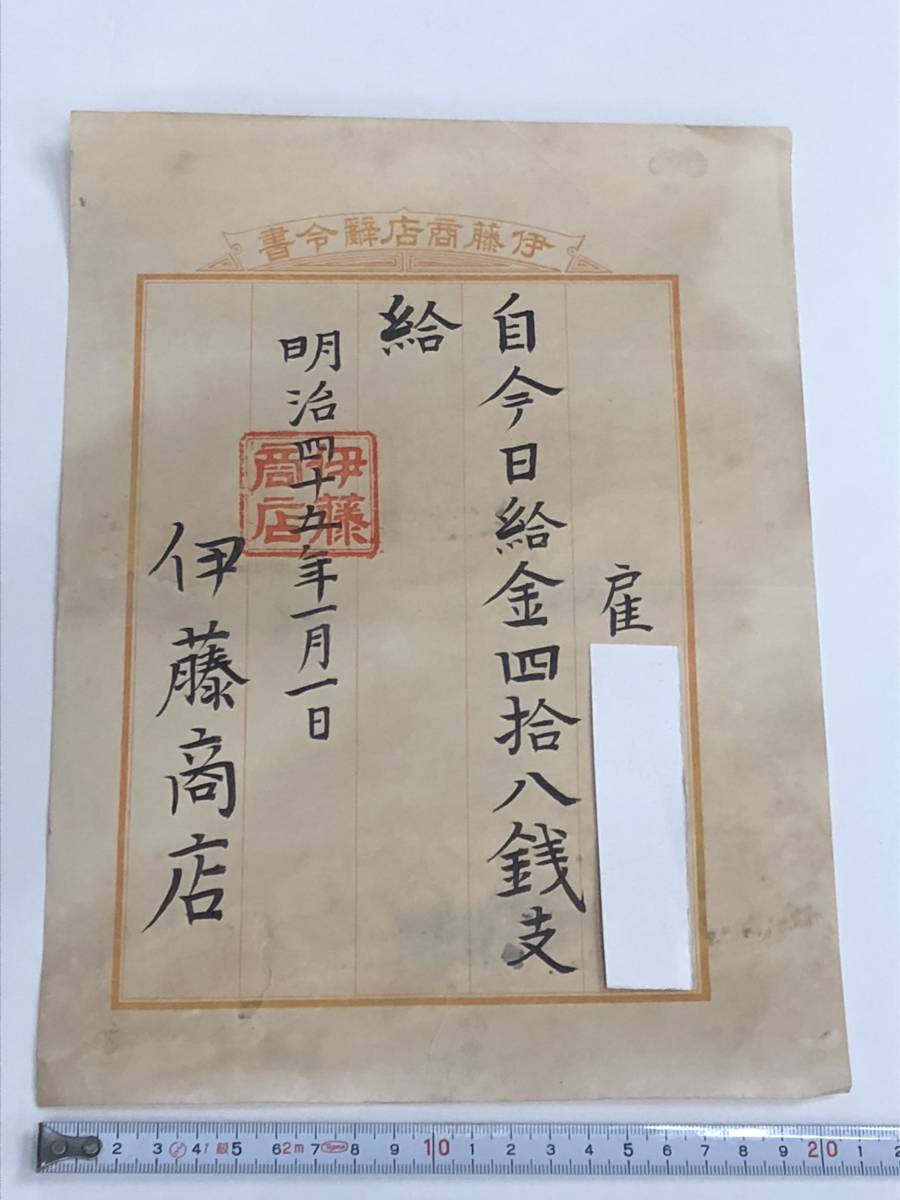 伊藤商店辭令書
雇
自今日給金四拾八銭支
給
明治四十五年一月一日
伊藤商店
伊藤
商店
2 3 4 5 6 2m 7 8 9 10 1 2 3 4 5 6 7 8 9 20 1